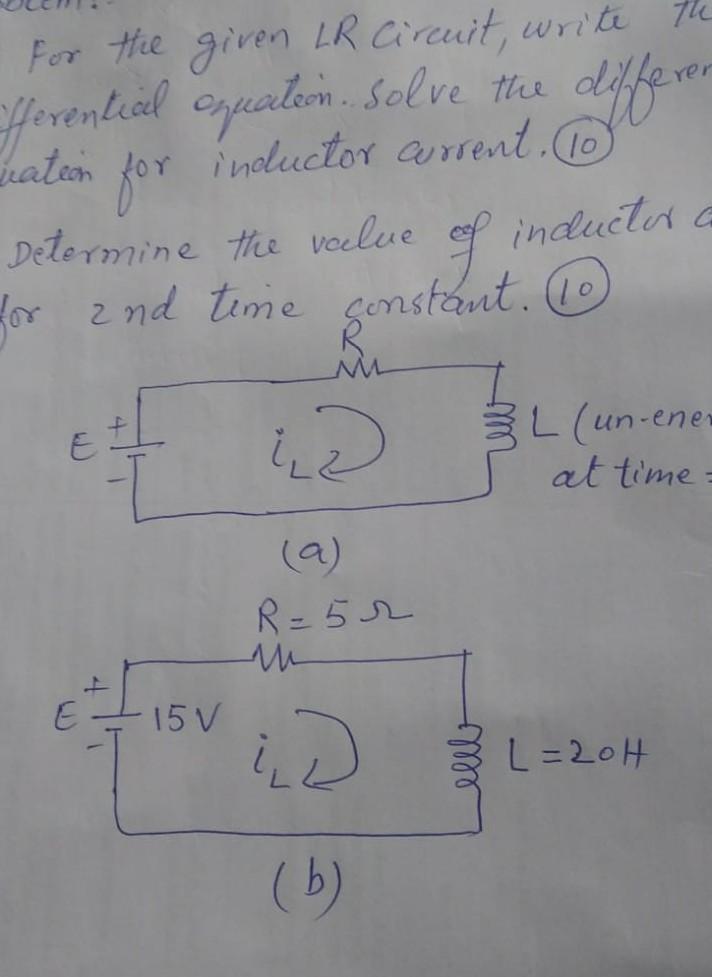 For the given LR Circuit, write
equation. Solve the
for inductor current. (10)
Determine the value of inductor
for 2nd time constant. (10)
R
E + -
iL
L (un-ener
at time =
(a)
R = 5 Ω
E + - 15V
iL
L = 20H
(b)